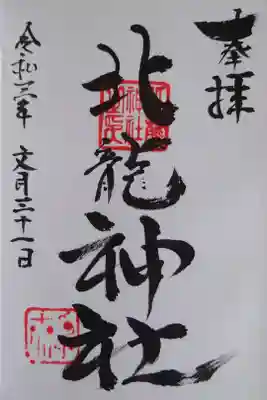 奉拝
北龍神社
令和三年 文月三十一日